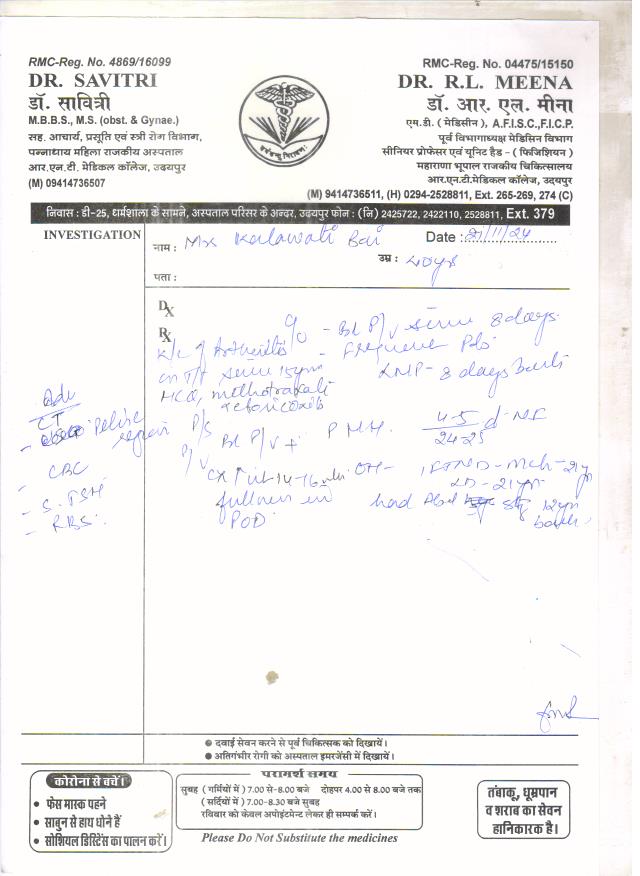 RMC-Reg. No. 4869/16099
DR. SAVITRI
डॉ. सावित्री
M.B.B.S., M.S. (obst. & Gynae.)
सह. आचार्य, प्रसूति एवं स्त्री रोग विभाग,
पन्नाधाय महिला राजकीय अस्पताल
आर.एन.टी. मेडिकल कॉलेज, उदयपुर
(M) 09414736507
RMC-Reg. No. 04475/15150
DR. R.L. MEENA
डॉ. आर. एल. मीना
एम.डी. ( मेडिसीन ), A.F.I.S.C.,F.I.C.P.
पूर्व विभागाध्यक्ष मेडिसिन विभाग
सीनियर प्रोफेसर एवं यूनिट हैड - ( फिजिशियन )
महाराणा भूपाल राजकीय चिकित्सालय
आर.एन.टी.मेडिकल कॉलेज, उदयपुर
(M) 9414736511, (H) 0294-2528811, Ext. 265-269, 274 (C)
निवास : डी-25, धर्मशाला के सामने, अस्पताल परिसर के अन्दर, उदयपुर फोन : (नि) 2425722, 2422110, 2528811, Ext. 379
INVESTIGATION
नाम : Mrs Kalawati Bai
Date : 21/11/24
उम्र : 40yrs
पता :
Dx
Rx
c/o - Bl P/V since 8 days
K/c of Arthritis - Frequent Pds
on T/t since 15yrs LMP - 8 days back
HCQ, methotrexate
etoricoxib
Adv
CT Pelvis
P/S
Bl P/V + P M H. 4-5/24-25 d
P/V
- CBC
Cx Ut 14-16 wks OH - 1 FTND - Mch - 21yr
LD - 21yr
- S. TSH
fullness in had Abd 12yrs
back
- RBS
POD
दवाई सेवन करने से पूर्व चिकित्सक को दिखायें।
अतिगंभीर रोगी को अस्पताल इमरजेंसी में दिखायें।
कोरोना से बचें।
• फेस मास्क पहने
• साबुन से हाथ धोनें हैं
• सोशियल डिस्टेंस का पालन करें।
परामर्श समय
सुबह ( गर्मियों में ) 7.00 से-8.00 बजे दोहपर 4.00 से 8.00 बजे तक
( सर्दियों में ) 7.00-8.30 बजे सुबह
रविवार को केवल अपोइंटमेन्ट लेकर ही सम्पर्क करें।
Please Do Not Substitute the medicines
तंबाकू, धूम्रपान
व शराब का सेवन
हानिकारक है।